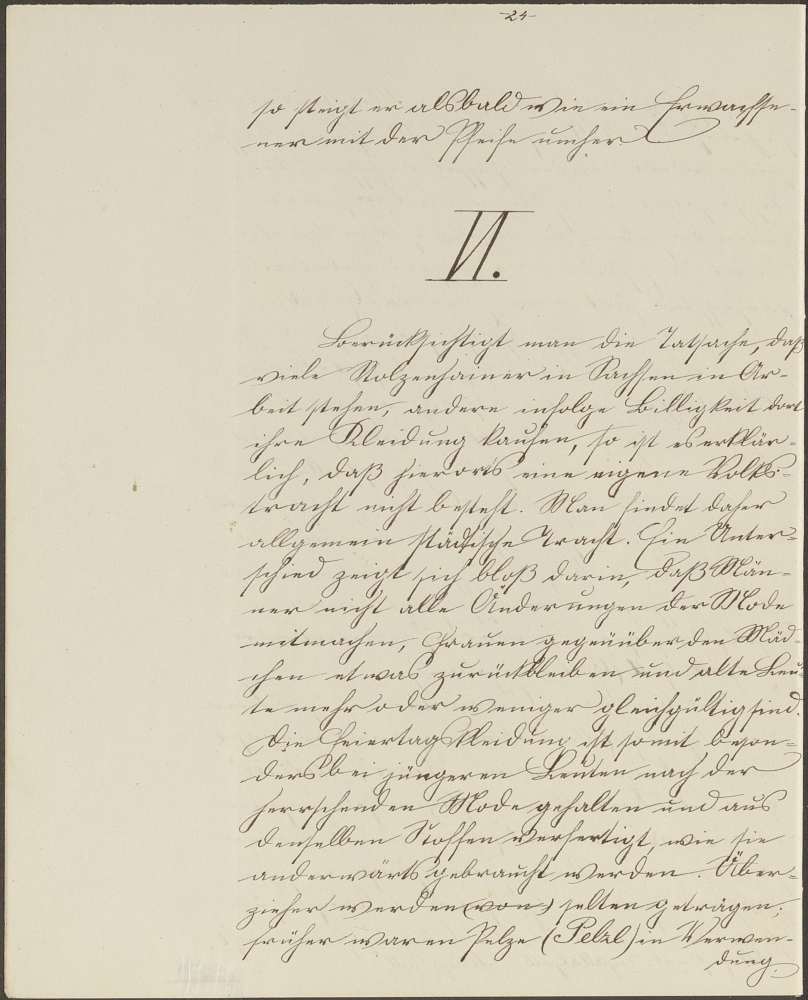 24
so steigt er alsbald wie ein Erwachse-
ner mit der Pfeife umher.
VI.
Berücksichtigt man die Tatsache, daß
viele Stolzenhainer in Sachsen in Ar-
beit stehen, andere infolge Billigkeit dort
ihre Kleidung kaufen, so ist es erklär-
lich, daß hierorts eine eigene Volks-
tracht nicht besteht. Man findet daher
allgemein städtische Tracht. Ein Unter-
schied zeigt sich bloß darin, daß Män-
ner nicht alle Änderungen der Mode
mitmachen, Frauen gegenüber den Mäd-
chen etwas zurückbleiben und alte Leu-
te mehr oder weniger gleichgültig sind.
Die Feiertagskleidung ist somit beson-
ders bei jüngeren Leuten nach der
herrschenden Mode gehalten und aus
denselben Stoffen verfertigt, wie sie
anderwärts gebraucht werden. Über-
zieher werden (von) selten getragen;
früher waren Pelze (Pelzl) in Verwen-
dung.